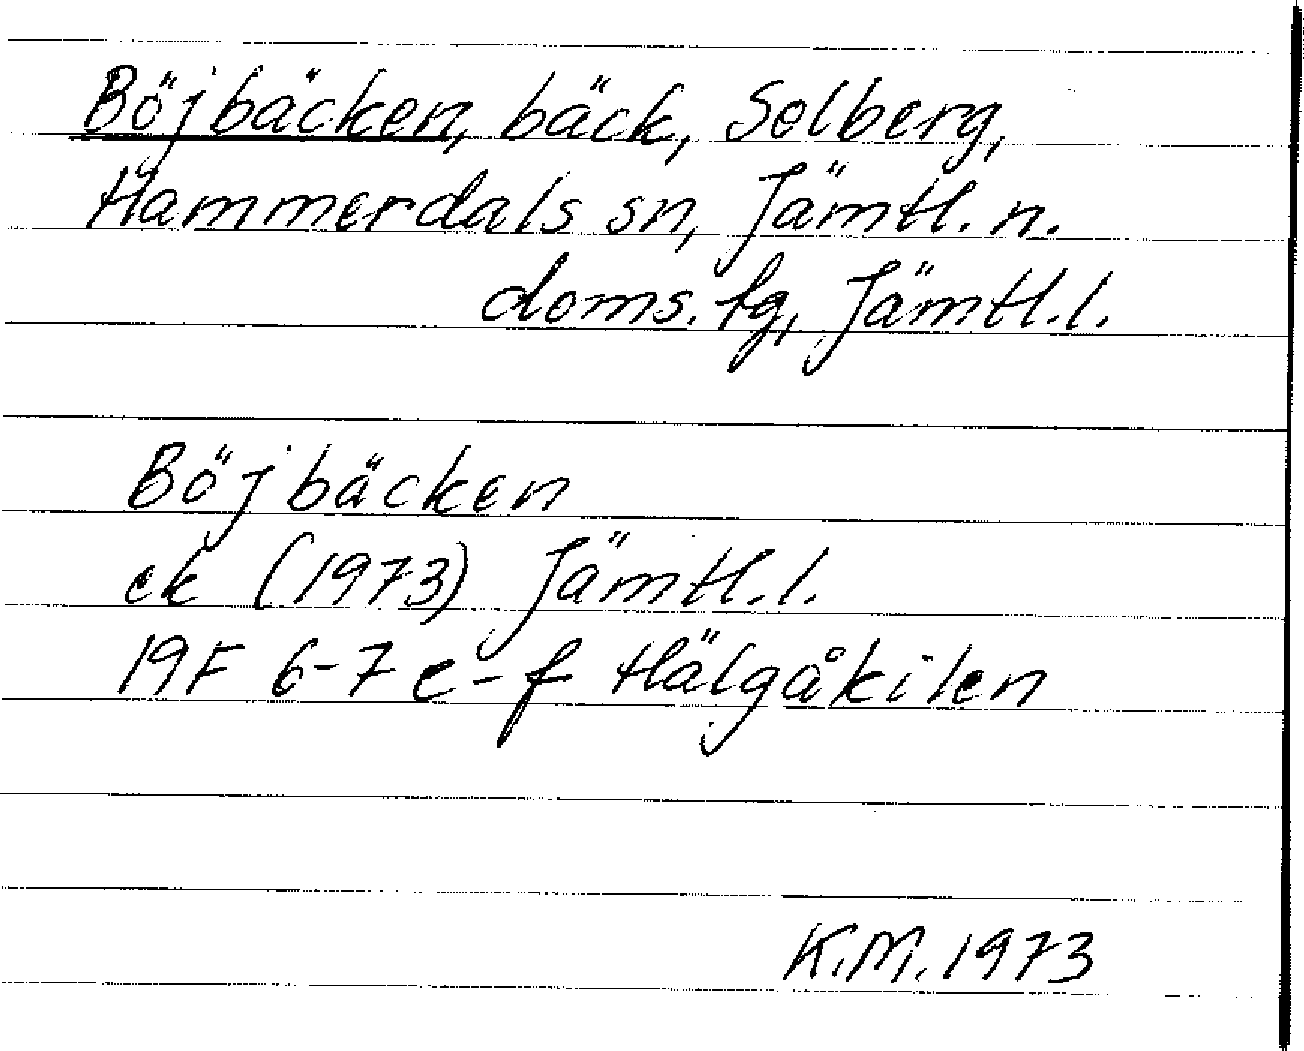 Böjbäcken, bäck, Solberg,
Hammerdals sn, Jämtl. n.
doms. tg, Jämtl. l.
Böjbäcken
ek (1973) Jämtl. l.
19F 6-7 e-f Hälgåkilen
K.M. 1973